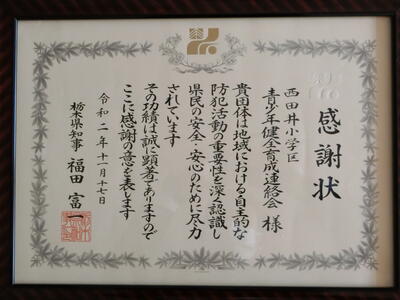 感謝状
西田井小学区
青少年健全育成連絡会 様
貴団体は地域における自主的な
防犯活動の重要性を深く認識し
県民の安全・安心のために尽力
されています
その功績は誠に顕著でありますので
ここに感謝の意を表します
令和二年十一月十七日
栃木県知事 福田富一